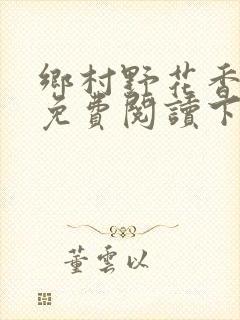 鄉村野花香
免費閱讀下
董雲以